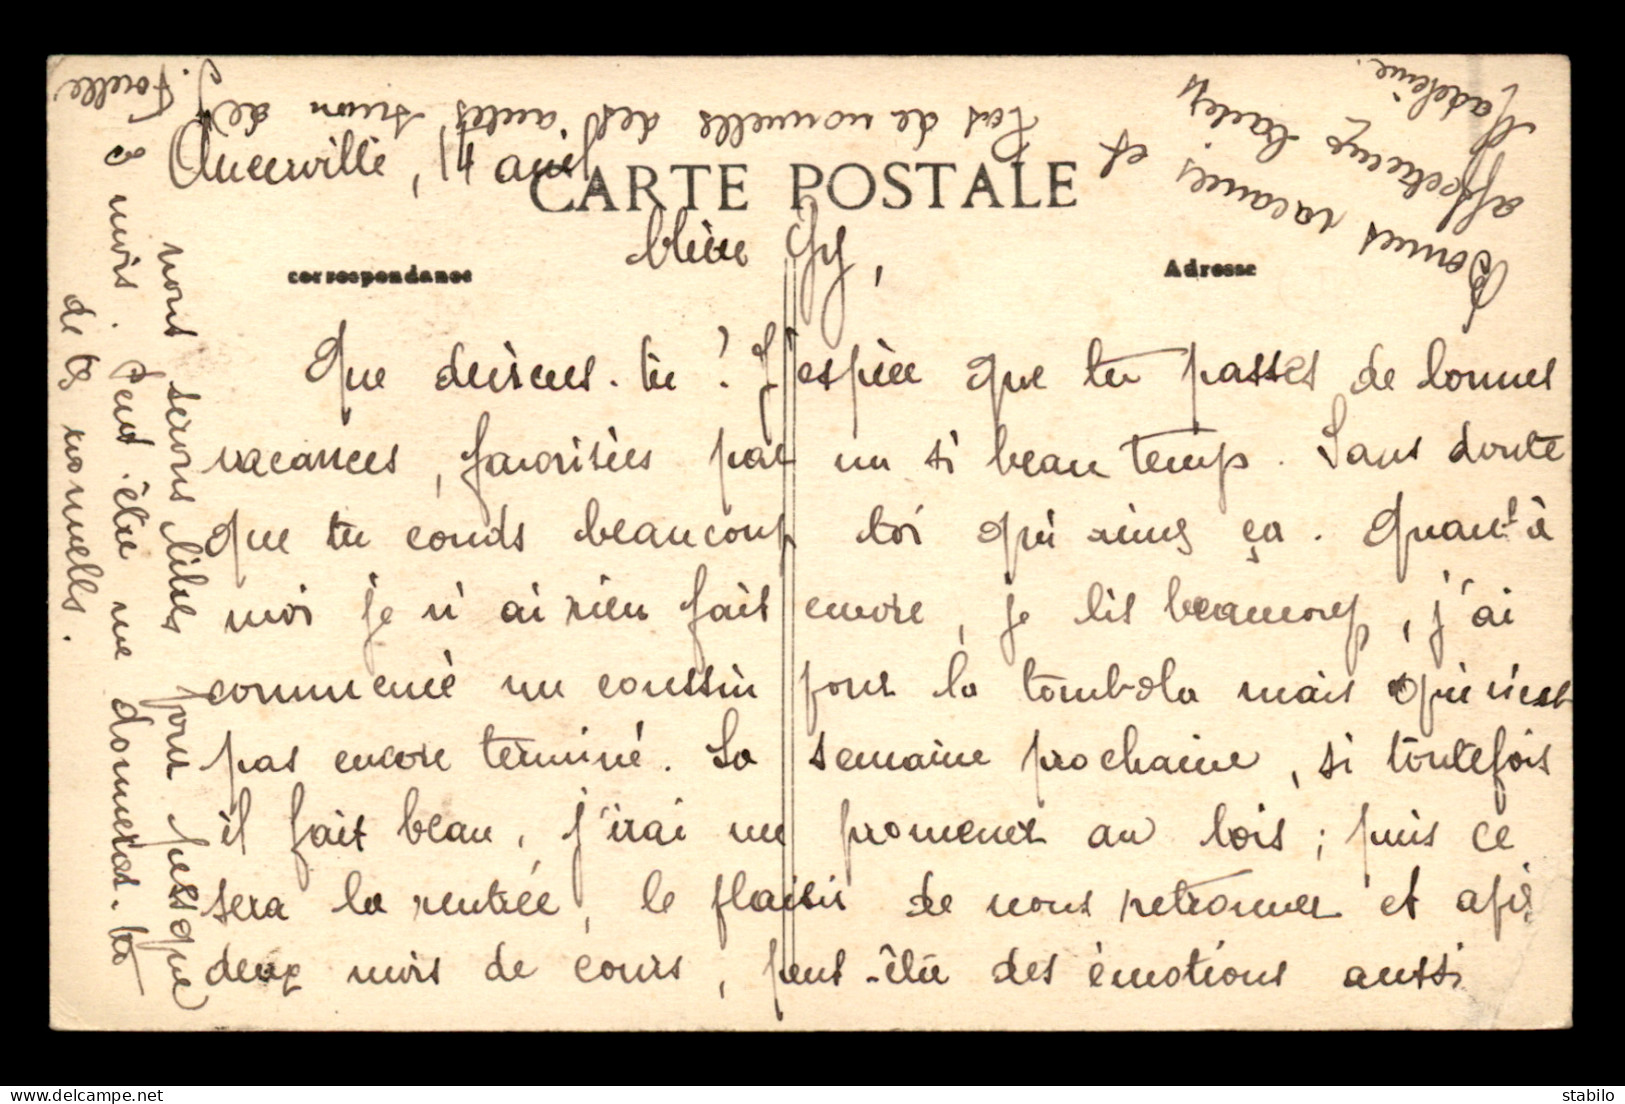 Ancerville, 14 août
CARTE POSTALE
Mère Gy,
correspondance
Adresse
Que deviens-tu ? J'espère que tu passes de bonnes
vacances, favorisées par un si beau temps. Sans doute
que tu couds beaucoup toi qui aimes ça. Quant à
moi je n'ai rien fait encore, je lis beaucoup, j'ai
commencé un coussin pour la tombola mais qui n'est
pas encore terminé. La semaine prochaine, si toutefois
il fait beau, j'irai me promener au bois ; puis ce
sera la rentrée, le plaisir de nous retrouver et après
deux mois de cours, peut-être des émotions aussi
nous serons libres pour presque
3 mois. Peut-être me donneras-tu
de tes nouvelles.
Pas de nouvelles des autres sinon de
J.
Bonnes vacances et
affectueux baisers
Madeleine.